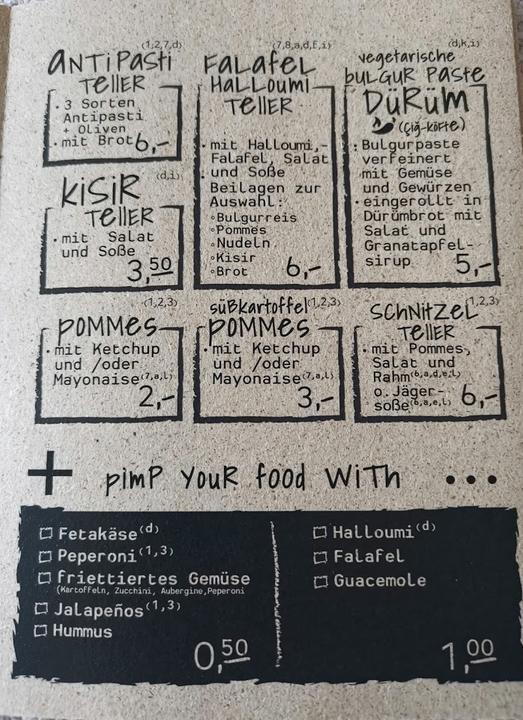 (1,2,7,d)
ANTiPasti
TELLER
· 3 Sorten
Antipasti
+ Oliven
· mit Brot 6,-
(7,8,a,d,f,i)
FaLafeL
HaLLoumi
TELLER
· mit Halloumi,-
Falafel, Salat
und Soße
· Beilagen zur
Auswahl:
◦Bulgurreis
◦Pommes
◦Nudeln
◦Kisir
◦Brot 6,-
(d,k,i)
vegetarische
buLGUR Paste
DüRüm
(Çiğ-Köfte)
· Bulgurpaste
verfeinert
mit Gemüse
und Gewürzen
· eingerollt in
Dürümbrot mit
Salat und
Granatapfel-
sirup 5,-
(d,i)
KiSiR
TELLER
· mit Salat
und Soße
3,50
(1,2,3)
POMMES
· mit Ketchup
und /oder
Mayonaise(7,a,l)
2,-
süßkartoffel(1,2,3)
POMMES
· mit Ketchup
und /oder
Mayonaise(7,a,l)
3,-
(1,2,3)
SCHNiTZEL
TELLER
· mit Pommes,
Salat und
Rahm(6,a,d,e,l)
o.Jäger-
soße(6,a,e,l) 6,-
+ pimP YouR food WiTh ...
Fetakäse(d)
Peperoni(1,3)
friettiertes Gemüse
(Kartoffeln, Zucchini, Aubergine,Peperoni
Jalapeños(1,3)
Hummus
0,50
Halloumi(d)
Falafel
Guacemole
1,00